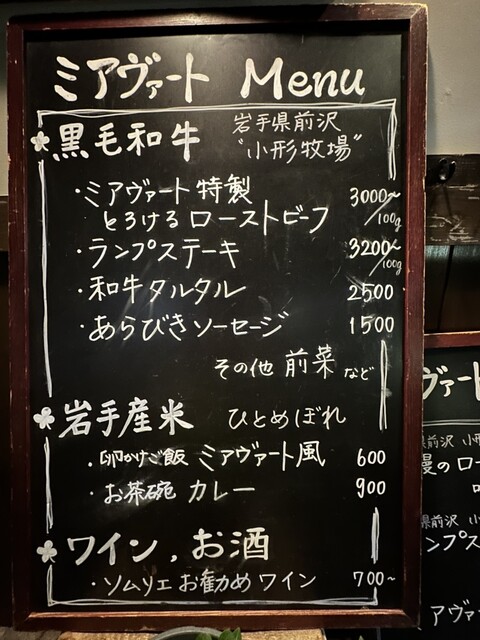 ミアヴァート Menu
黒毛和牛 岩手県前沢
"小形牧場"
・ミアヴァート特製
とろけるローストビーフ 3000~/100g
・ランプステーキ 3200~/100g
・和牛タルタル 2500
・あらびきソーセージ 1500
その他 前菜 など
岩手産米 ひとめぼれ
・卵かけご飯 ミアヴァート風 600
・お茶碗 カレー 900
ワイン, お酒
・ソムリエお勧めワイン 700~
ヴァート
県前沢 小
のロー
県前沢 小
ンプス
アヴァ